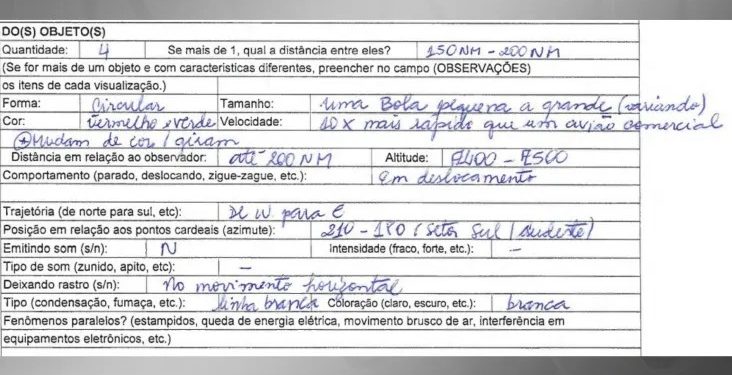 DO(S) OBJETO(S)
Quantidade: 4 Se mais de 1, qual a distância entre eles? 150NM - 200NM
(Se for mais de um objeto e com caracteristicas diferentes, preencher no campo (OBSERVAÇÕES)
os itens de cada visualização.)
Forma: Circular Tamanho: uma Bola pequena a grande (variando)
Cor: vermelho e verde Velocidade: 10 x mais rapido que um avião comercial
Mudam de cor / giram
Distância em relação ao observador: até 200 NM Altitude: FL400 - FL500
Comportamento (parado, deslocando, zigue-zague, etc.): Em deslocamento
Trajetória (de norte para sul, etc): De W para E
Posição em relação aos pontos cardeais (azimute): 210 - 180 (Setor Sul / Sudeste)
Emitindo som (s/n): N Intensidade (fraco, forte, etc.): -
Tipo de som (zunido, apito, etc): -
Deixando rastro (s/n): No movimento horizontal
Tipo (condensação, fumaça, etc.): linha branca Coloração (claro, escuro, etc.): branca
Fenômenos paralelos? (estampidos, queda de energia elétrica, movimento brusco de ar, interferência em
equipamentos eletrônicos, etc.)